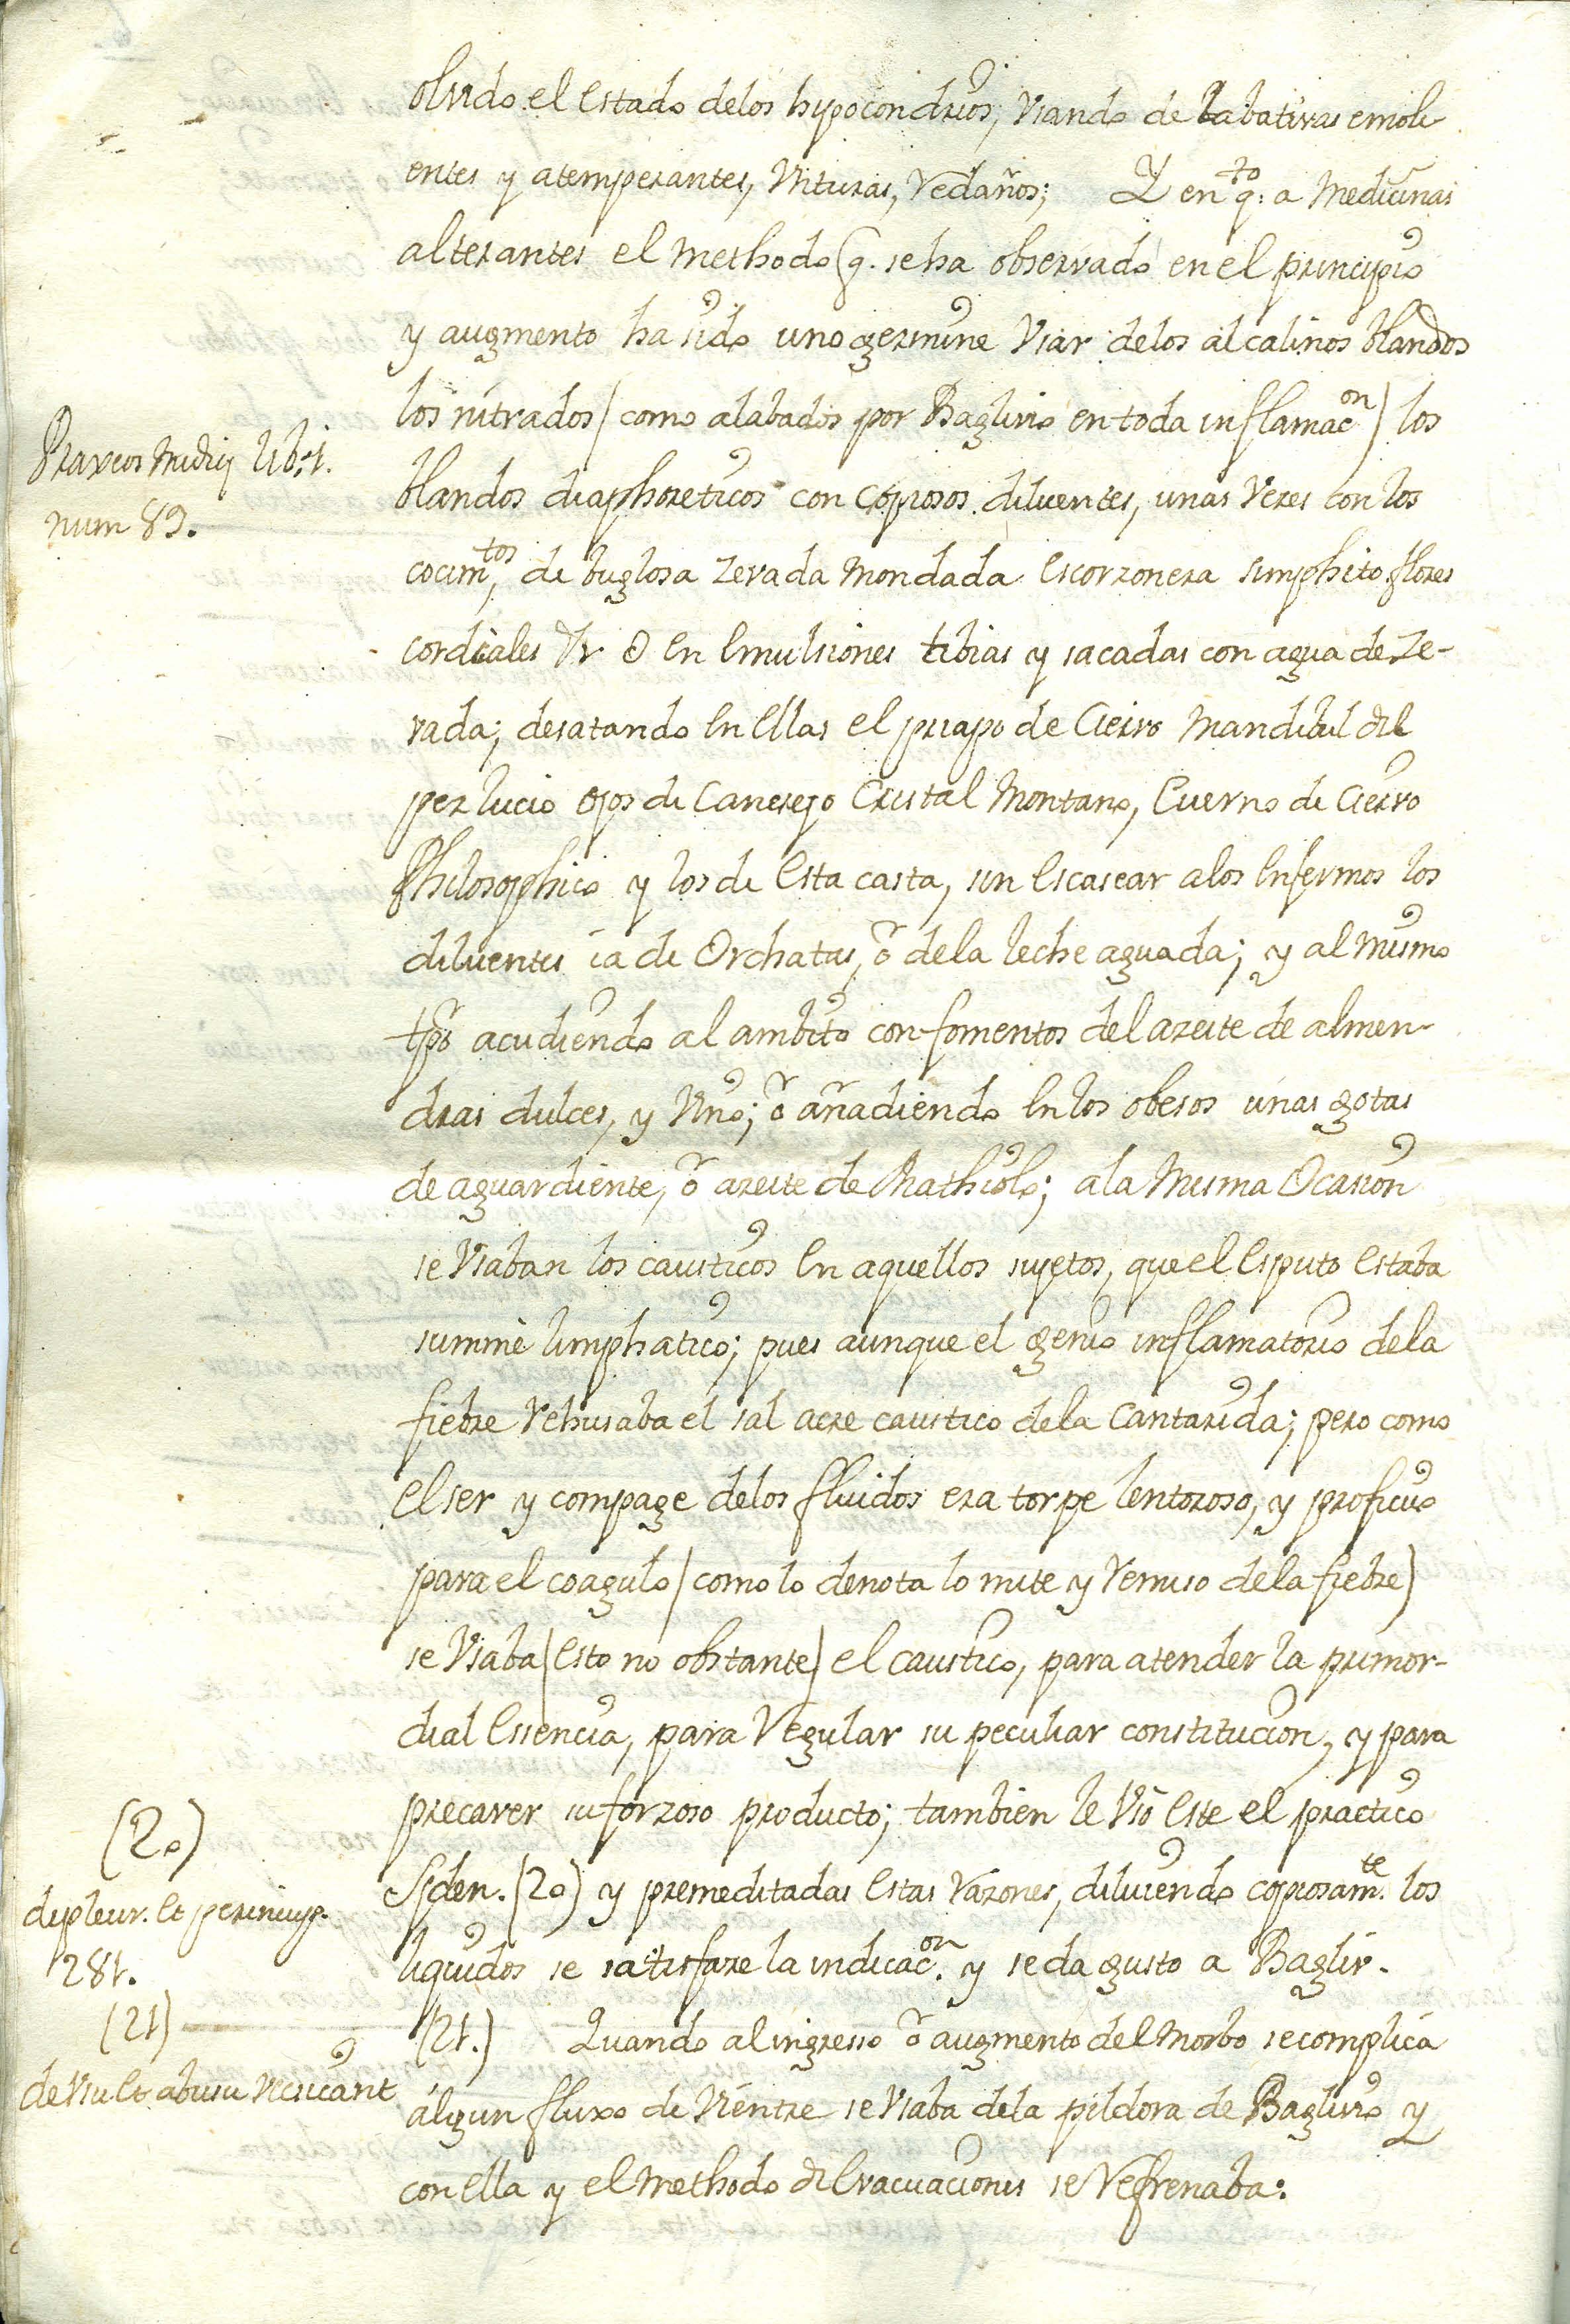 olvido el estado delos hypocondrios; Usando de Labativas emoli-
entes y atemperantes, Unturas, Redaños; Y en qto: a Medicinas
alterantes el Methodo (q. se ha observado en el principio
y augmento ha sido uno germine Usar delos alcalinos blandos
los nitrados (como alabados por Baglivio en toda inflamacon) los
Praxeos Medicę lib. 1.
num 89.
blandos diaphoreticos con copiosos diluentes, unas Vezes con los
cocimtos, de buglosa Zevada Mondada Escorzonera simphito flores
cordiales Vr O En Emulsiones tibias y sacadas con agua de Ze-
vada; desatando En Ellas el priapo de Ciervo Mandibul del
pez lucio ojos de Canerejo Cristal Montano, Cuerno de Ciervo
Philosophico y los de Esta casta, sin Escasear alos Enfermos los
diluentes ia de Orchatas, õ dela leche aguada; y al Mismo
tpõ acudiendo al ambito con fomentos del azeite de almen-
dras dulces, y Vino; õ añadiendo En los obesos unas gotas
de aguardiente, õ azeite de Mathiolo; ala Misma Ocasion
se Usaban los causticos En aquellos sujetos, que el Esputo Estaba
summè limphatico; pues aunque el genio inflamatorio dela
fiebre Rehusaba el sal acre caustico dela Cantarida; pero como
el ser y compage delos fluidos era torpe lentoroso, y proficuo
para el coagulo (como lo denota lo mite y Remiso dela fiebre)
se Usaba (Esto no obstante) el caustico, para atender la primor-
dial Essencia, para Regular su peculiar constitucion, y para
precaver su forzoso producto; tambien le Usó Este el practico
(20)
depleur. Et peripneup.
281.
Syden. (20) y premeditadas Estas Razones, diluiendo copiosamte. los
liquidos se satisfaze la indicacon. y se da gusto a Bagliv.
(21)
de Usu Et abusu Vesicant
(21.) Quando al ingresso õ augmento del Morbo se complica
algun fluxo de Vientre se Usaba dela pildora de Baglivio y
con Ella y el Methodo dE Evacuaciones se Refrenaba: